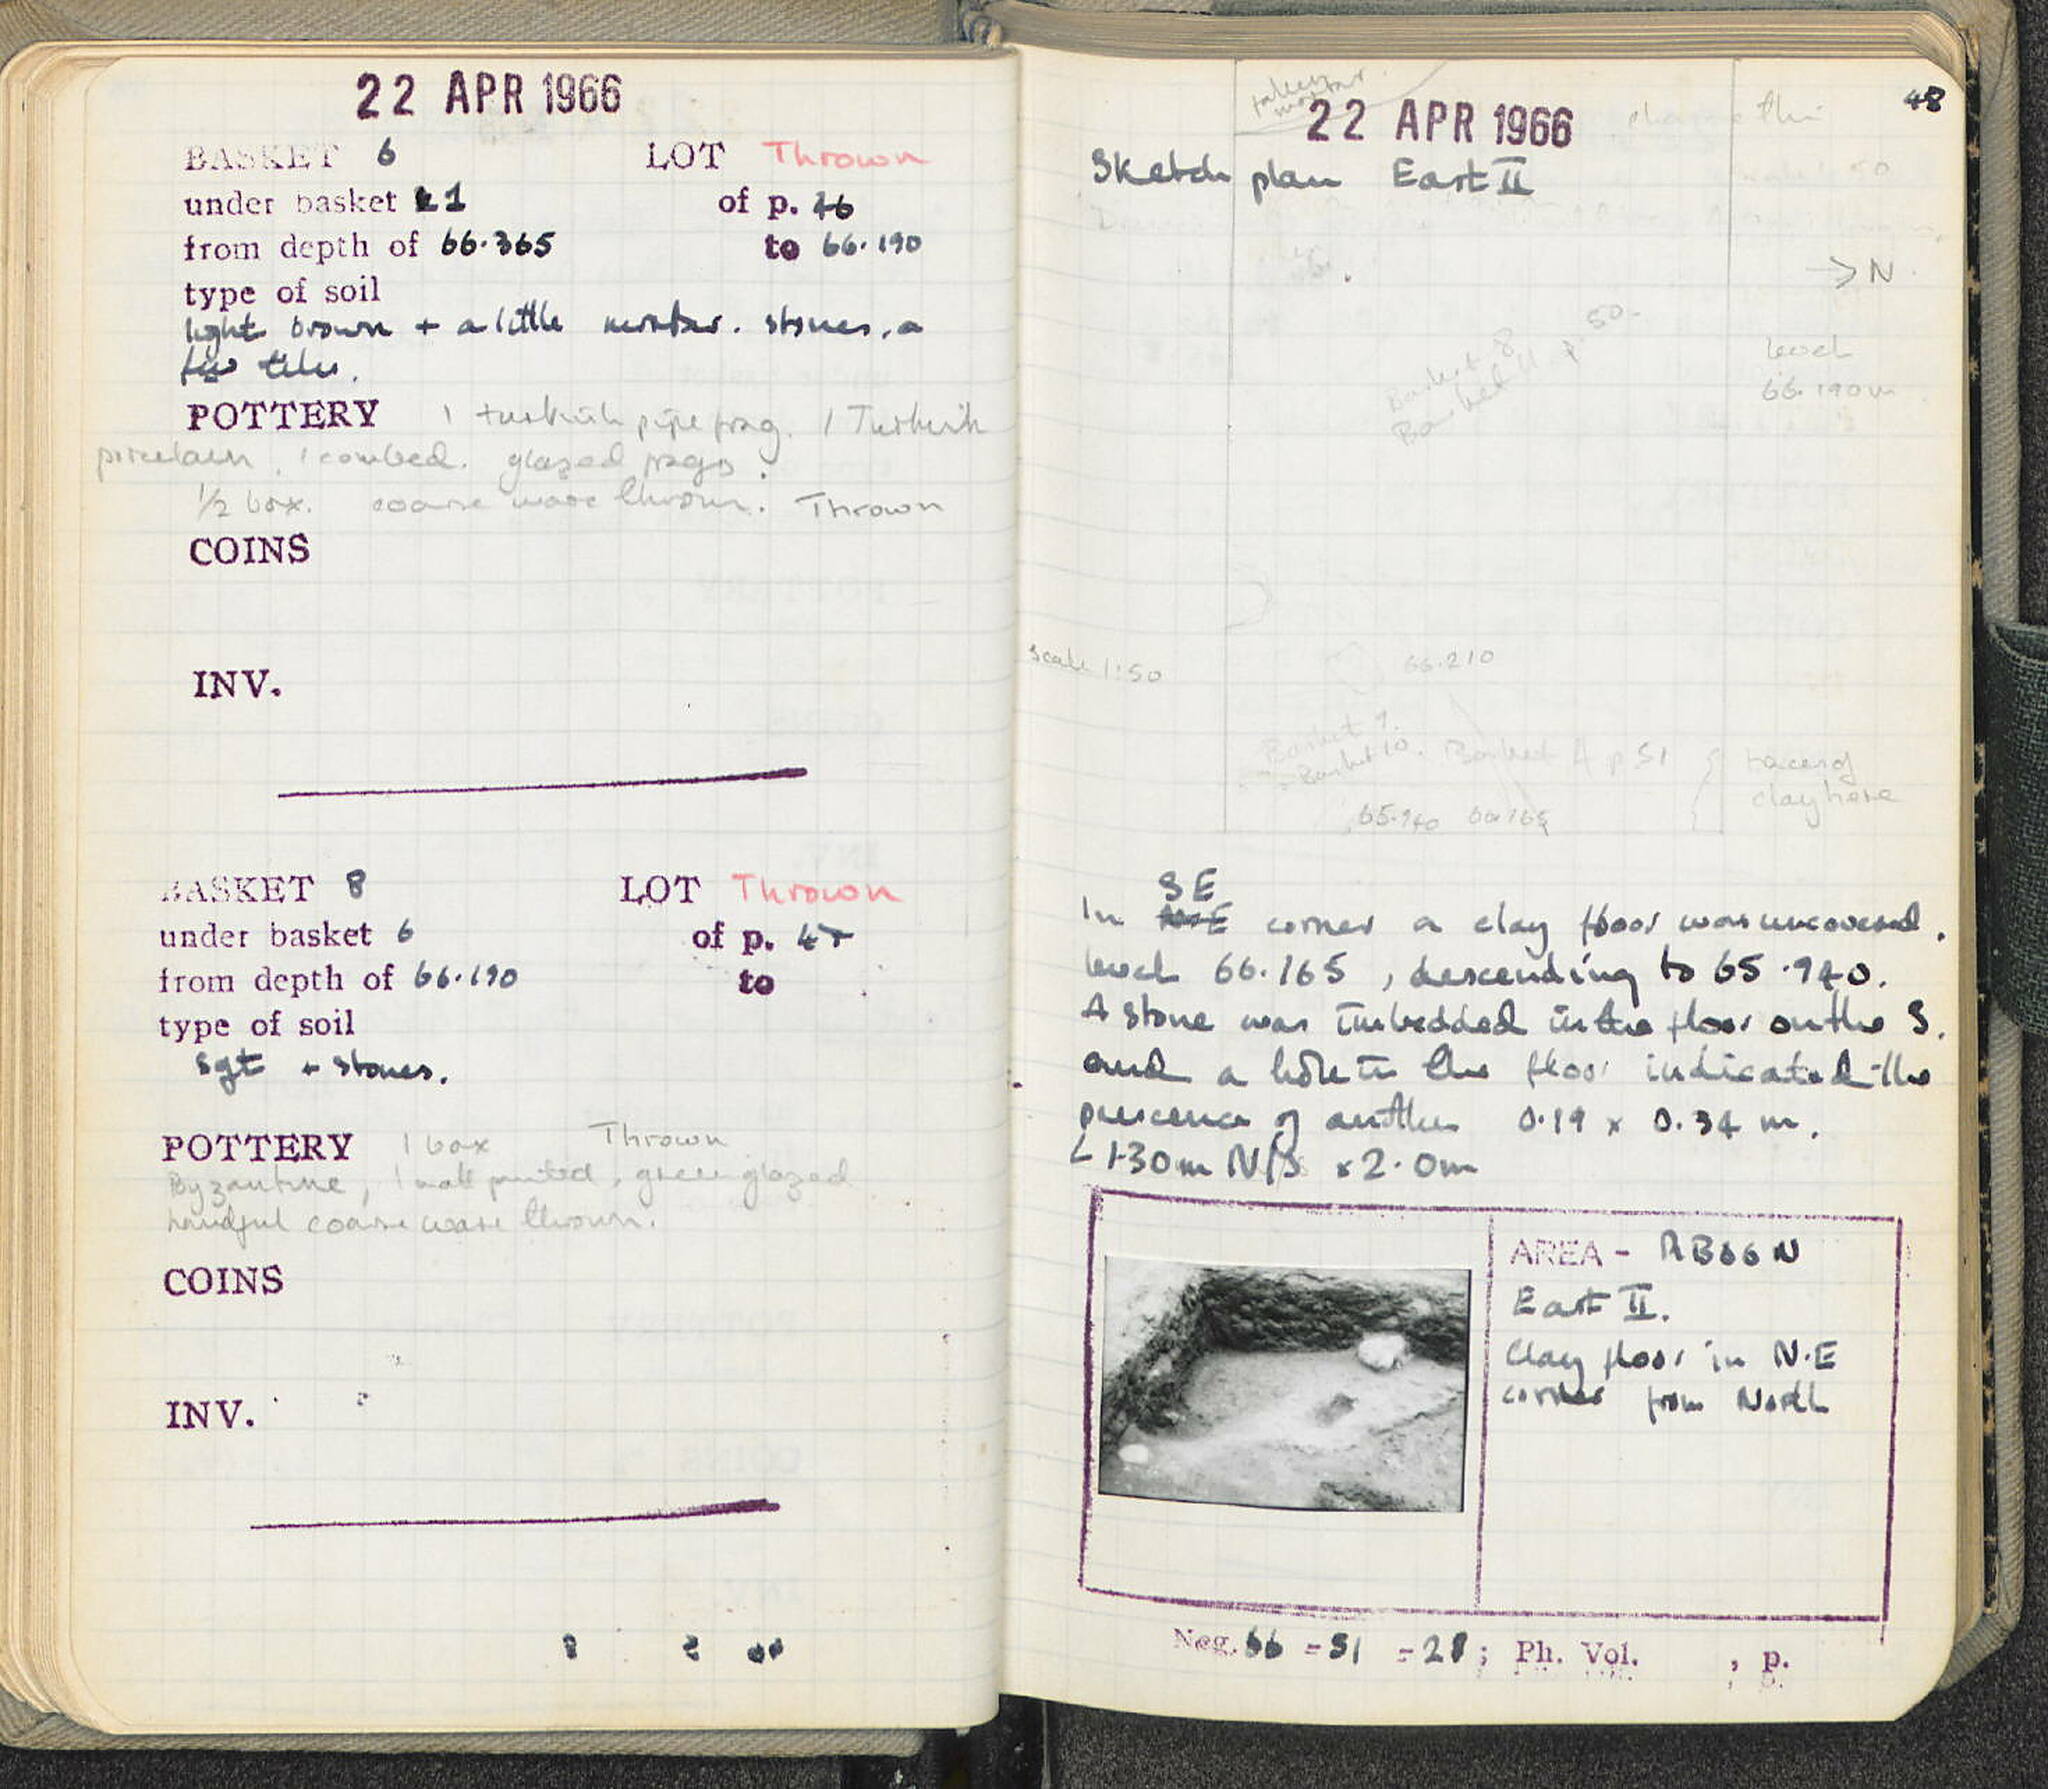 22 APR 1966
BASKET 6 LOT Thrown
under basket 1 of p. 46
from depth of 66.365 to 66.190
type of soil
light brown + a little mortar. stones. a
few tiles.
POTTERY 1 turkish pipe frag. 1 Turkish
porcelain, 1 combed. glazed frags.
1/2 box. coarse ware thrown. Thrown
COINS
INV.
BASKET 8 LOT Thrown
under basket 6 of p. 47
from depth of 66.190 to
type of soil
sgt + stones.
POTTERY 1 box Thrown
Byzantine, 1 matt painted, green glazed
handful coarse ware thrown.
COINS
INV.
48
22 APR 1966
Sketch plan East II
→ N
level
66.190m
Basket 8
Basket 11 p 50
Scale 1:50
66.210
Basket 9.
Basket 10. Basket p 51
traces of
clay here
65.940 66.165
SE
In corner a clay floor was uncovered.
level 66.165, descending to 65.940.
A stone was imbedded in the floor on the S.
and a hole in the floor indicated the
prescence of another 0.19 x 0.34 m.
1.30m N/S x 2.0m
AREA - RB66N
East II.
Clay floor in N.E
corner from North
Neg. 66 - 51 - 28; Ph. Vol. , p.